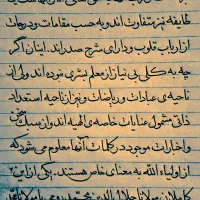 طایفه نیز متفاوت اند و به حسب مقامات و درجات
از ارباب قلوب و دارای شرح صدراند. اینان اگر
چه به کلی بی نیاز از معلم بشری نبوده اند ولی از
ناحیه ی عبادات و ریاضات و نیز از ناحیه استعداد
ذاتی مشمول عنایات خاصه ی الهیه اند و از سبک سخن
و اخبارات موجود در کلمات آنها معلوم می شود که
از اولیاء الله به معنای خاص هستند. یکی از این
کاملان مولانا جلال الدین محمد رومی